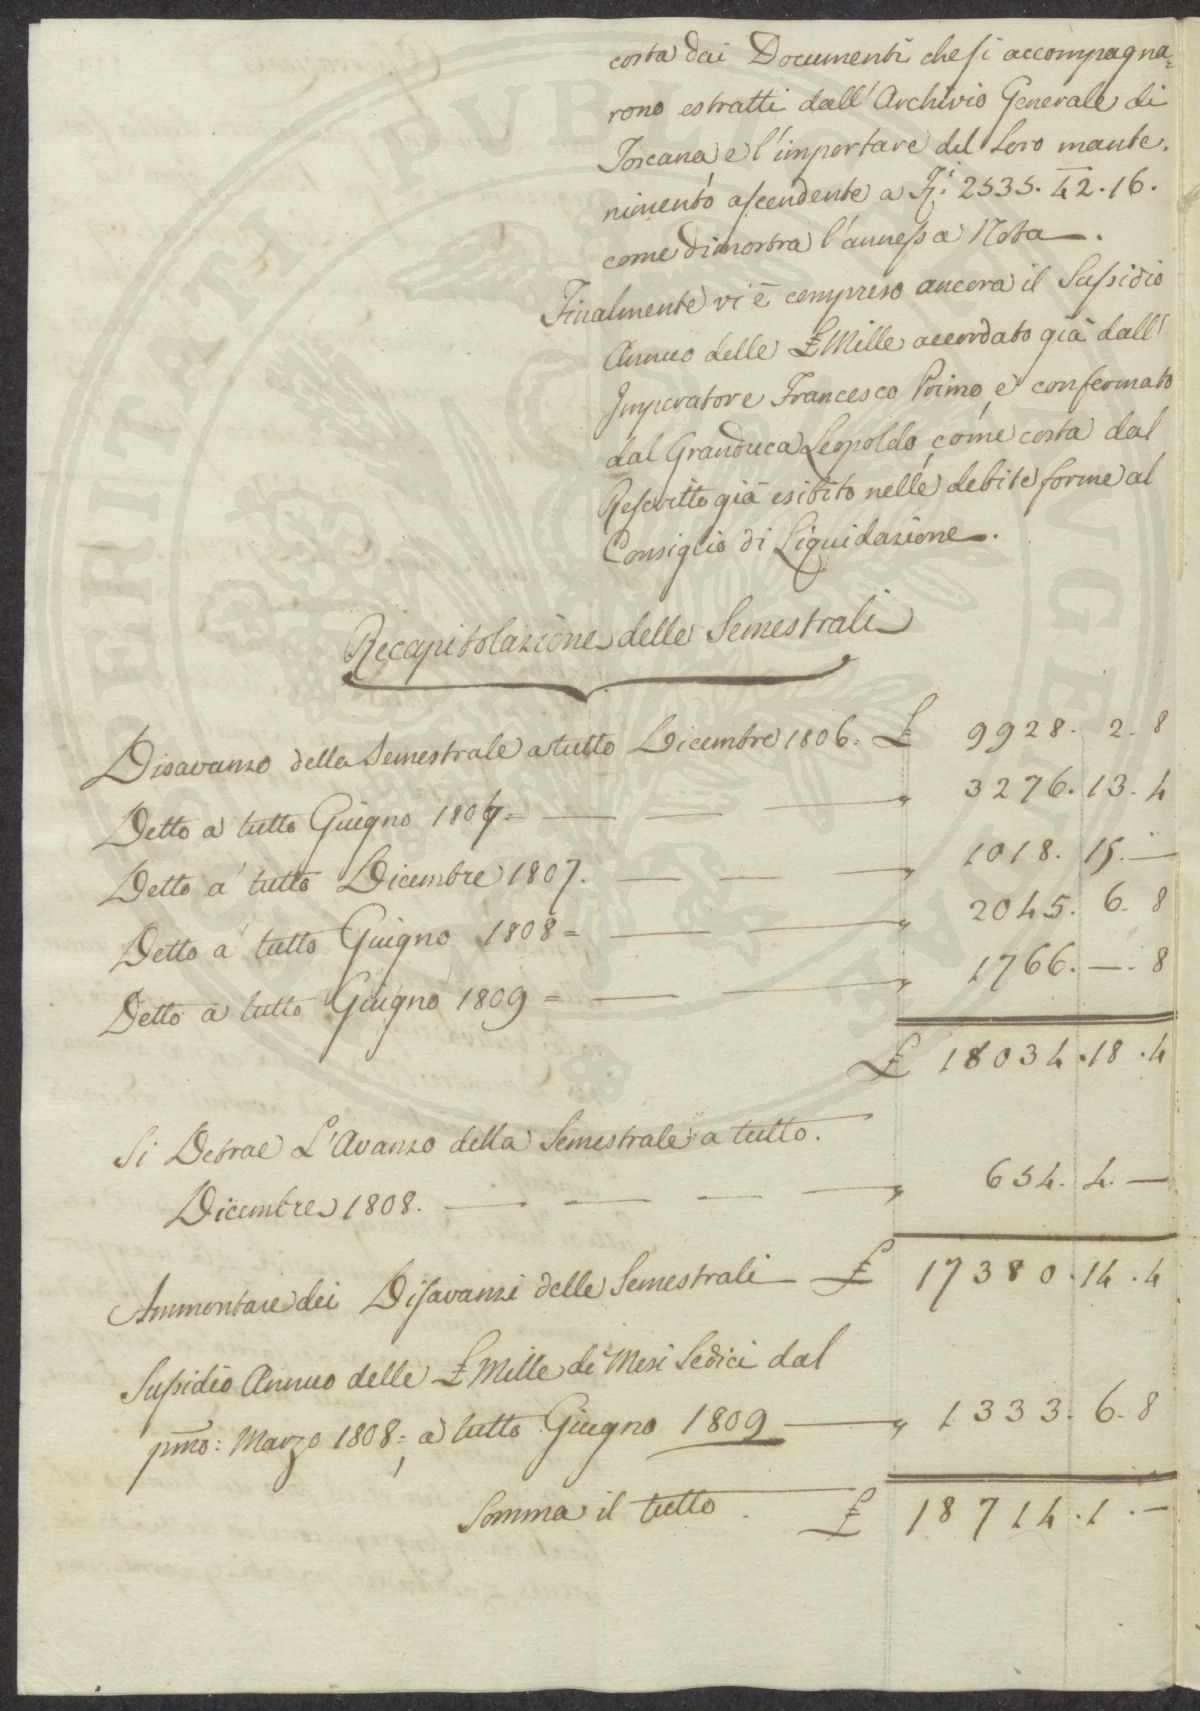 costa dai Documenti che si accompagna=
rono estratti dall'Archivio Generale di
Toscana e l'importare del Loro mante,
nimento ascendente a Fi. 2535. 42. 16.
come dimostra l'annessa Nota.
Finalmente vi è compreso ancora il Sussidio
Annuo delle £ Mille accordato già dall'
Imperatore Francesco Primo, e confermato
dal Granduca Leopoldo, come costa dal
Rescritto già esibito nelle debite forme al
Consiglio di Liquidazione.
Recapitolazione delle Semestrali
Disavanzo della Semestrale a tutto Dicembre 1806. £ 9928. 2. 8
Detto a tutto Giugno 1807= — — — „ 3276. 13. 4
Detto a tutto Dicembre 1807. — — — „ 1018. 15. —
Detto a tutto Giugno 1808= — — „ 2045. 6. 8
Detto a tutto Giugno 1809= — — „ 1766. —. 8
£ 18034. 18. 4
Si Detrae L'Avanzo della Semestrale a tutto.
Dicembre 1808. — — — — „ 654. 4. —
Ammontare dei Disavanzi delle Semestrali £ 17380. 14. 4
Sussidio Annuo delle £ Mille di Mesi Sedici dal
pmo: Marzo 1808=, a tutto Giugno 1809 — „ 1333. 6. 8
Somma il tutto £ 18714. 1. —